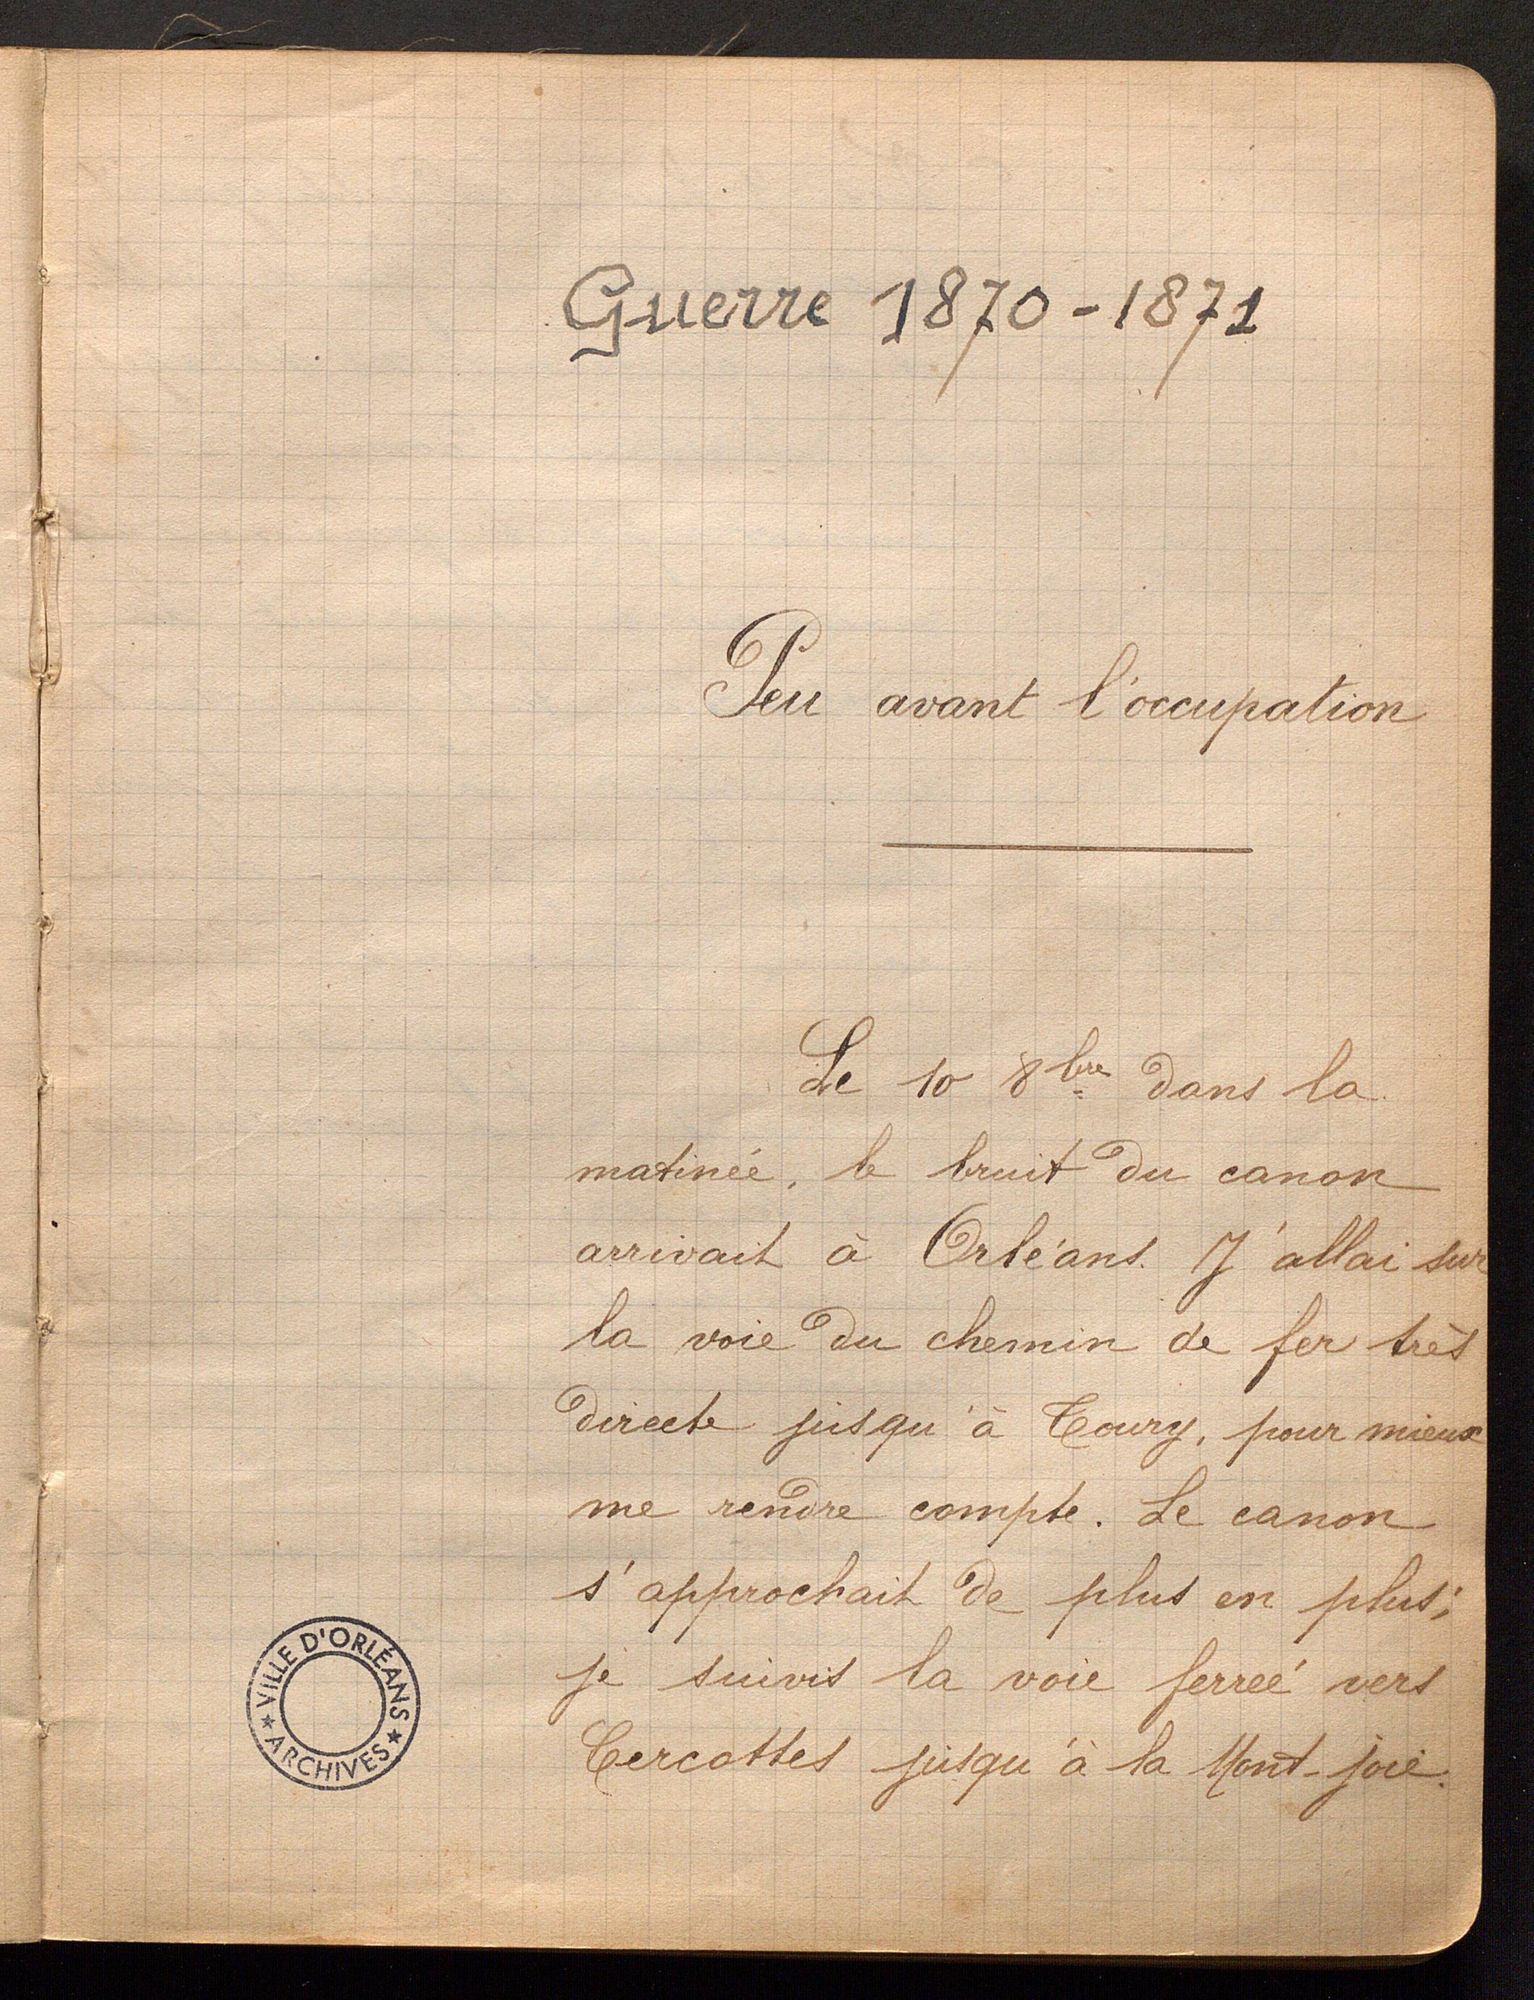 Guerre 1870-1871
Peu avant l'occupation
Le 10 8bre dans la
matinée, le bruit du canon
arrivait à Orléans. J'allai sur
la voie du chemin de fer très
directe jusqu'à Toury, pour mieux
me rendre compte. Le canon
s'approchait de plus en plus;
je suivis la voie ferreé vers
Cercottes jusqu'à la Mont-joie.
VILLE D'ORLÉANS
★ ARCHIVES ★